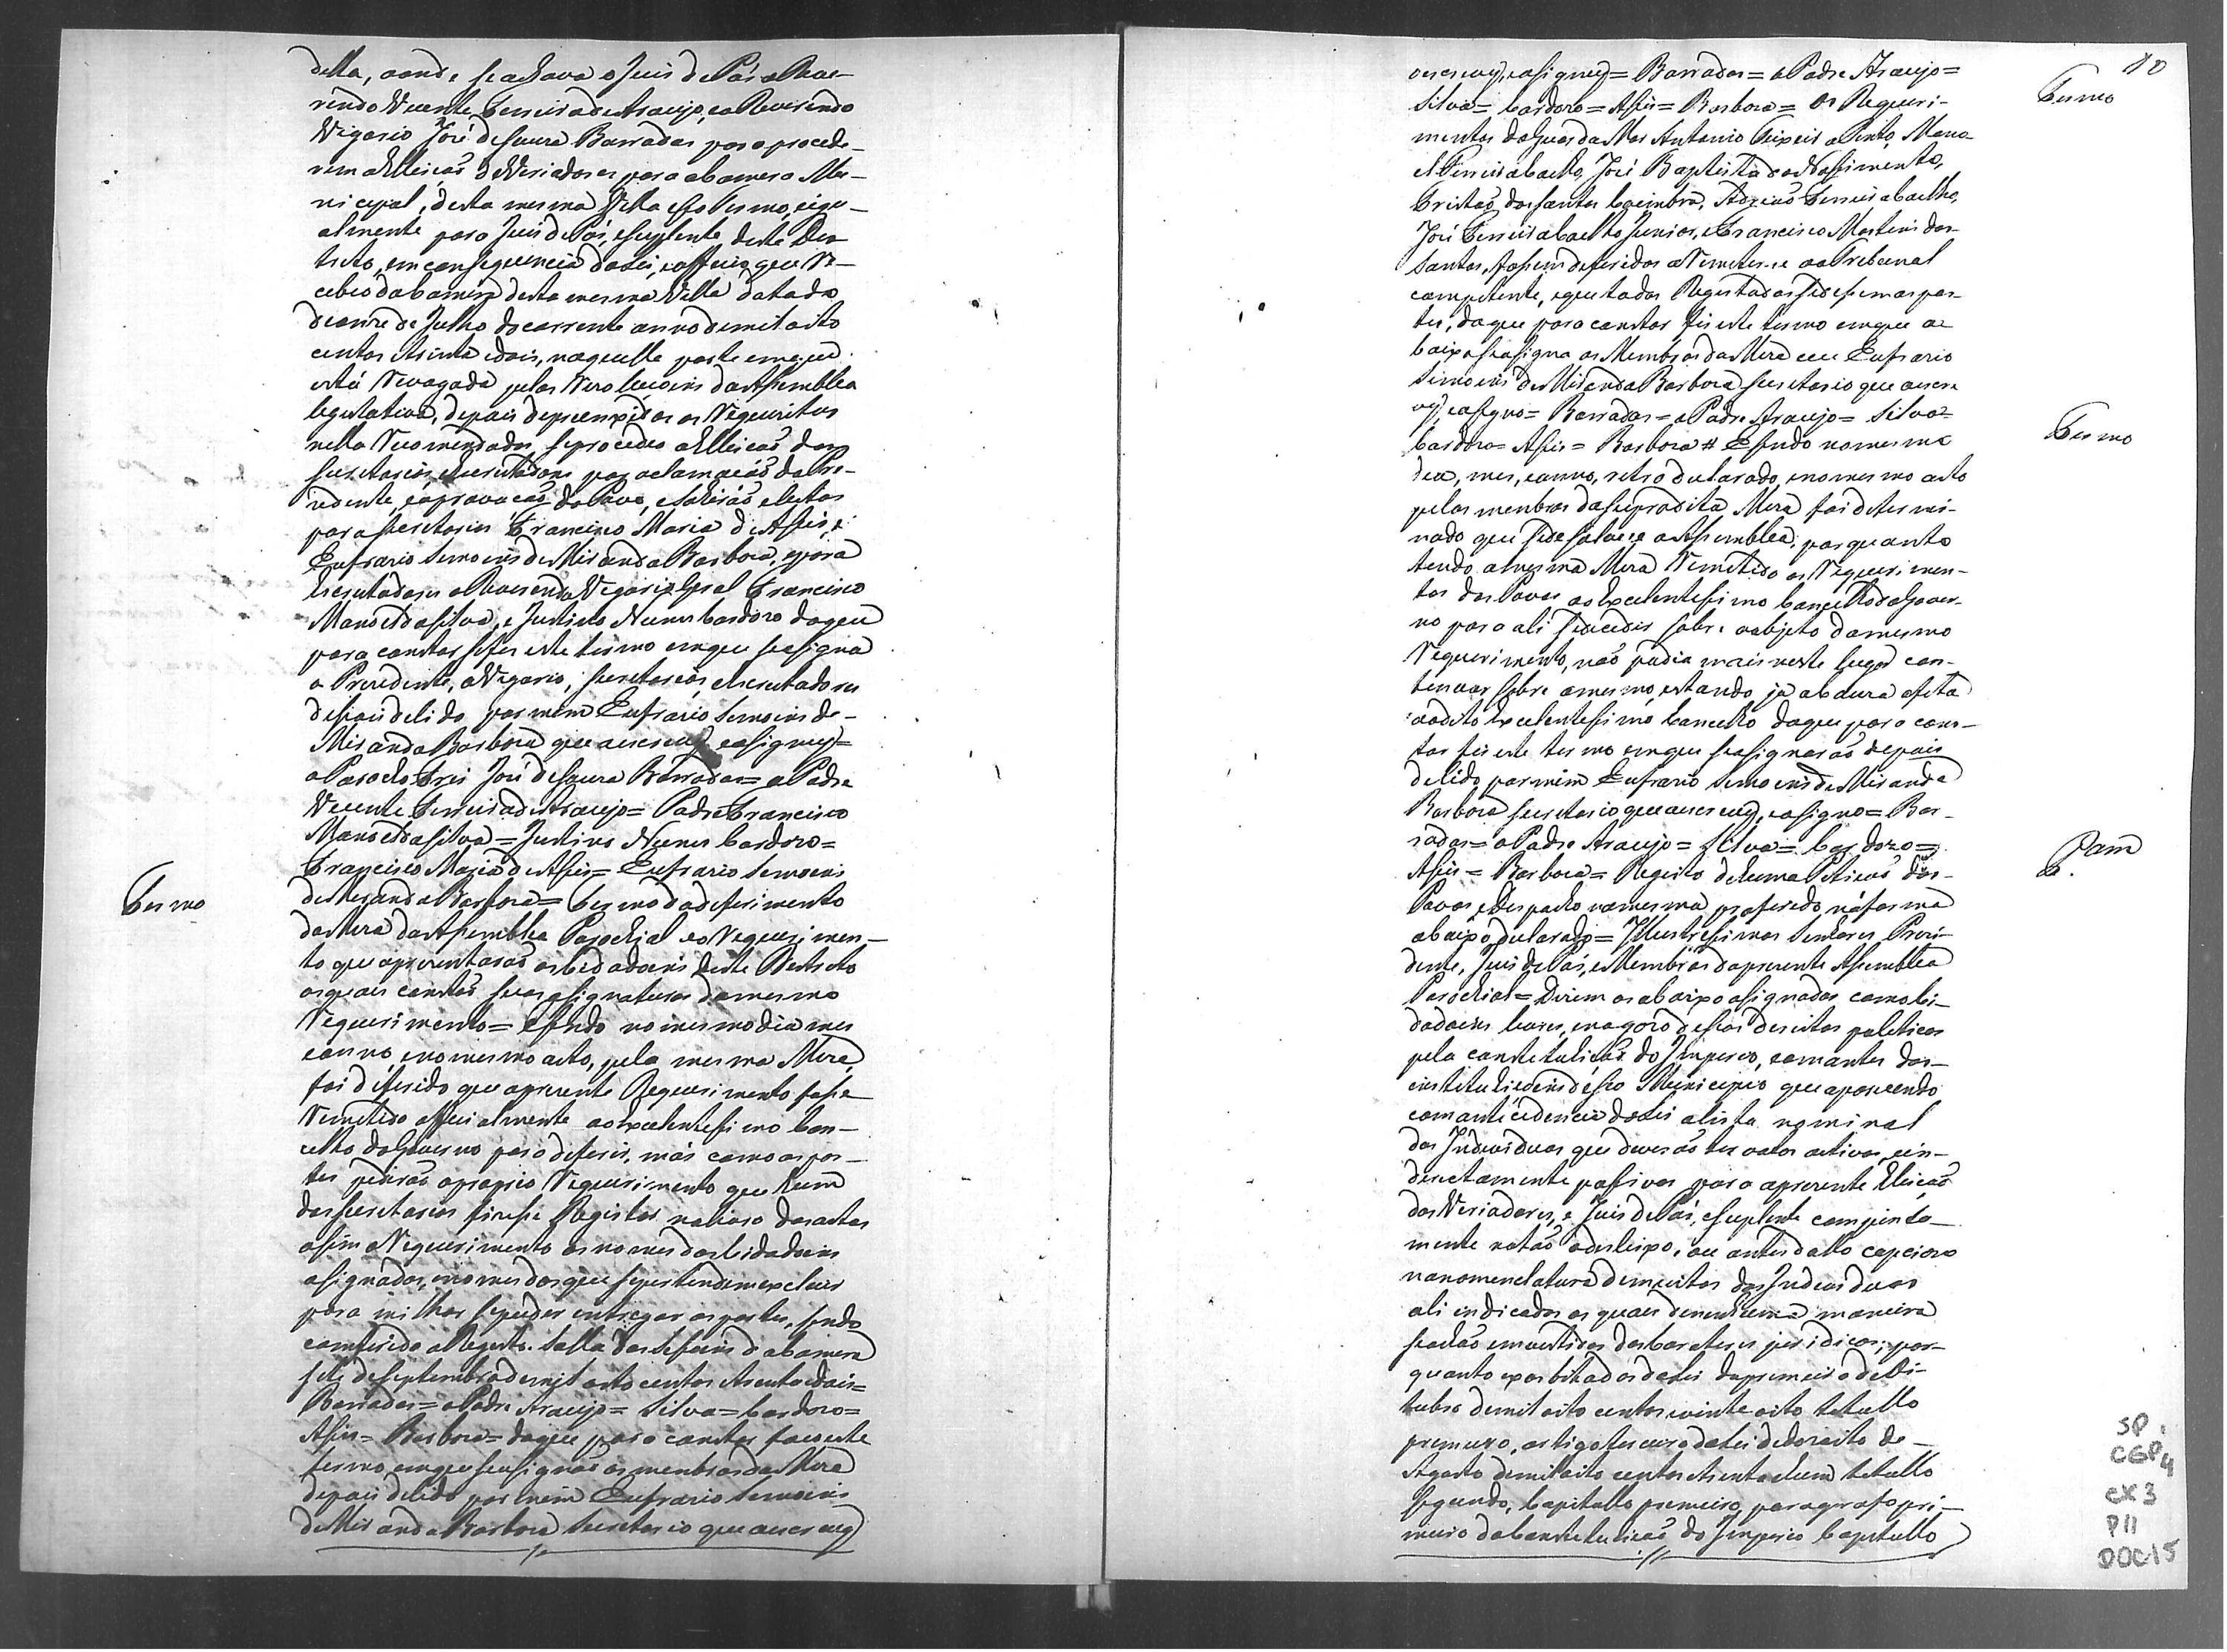 della, aonde se achava o Juis de Pás o Reve-
rendo Vicente Ferreira de Araujo, e o Reverendo
Vigario José de Souza Barradas para procede-
rem a Elleicaõ de Veriadores para a Camera Mu-
nicipal, desta mesma Villa e seo Termo, e igu-
almente para Juis de Pás, e suplente deste Des-
treto, em consequencia da Lei, e officio, que re-
cebeo da Camera desta mesma Villa datado
de onze de Julho do corrente anno de mil oito
centos trinta e dois, naquelle parte em que
está revogada pelas Rezolucoens da Assemblea
legeslativa, depois de preenxidos os requeritos
nella recomendados, se procedeo a Elleicaõ dos
Secretarios, e Escrutadores por aclamacaõ do Pre-
zidente, e aprovacaõ do Povo, e sahiraõ eleitos
para Secretarios Francisco Maria de Assis, e
Eufrazio Simoens de Miranda Barboza, e para
Escrutadores o Reverendo Vigario Geral Francisco
Manoel da Silva, e Justino Nunes Cardozo do que
para constar se fes este termo em que se asigna
o Prezidente, o Vigario, Secretarios, e Escrutadores
depois de lido por mim Eufrazio Simoens de
Miranda Barboza que o escrevy e asigney=
o Parocho José de Souza Barradas= o Padre
Vecente Ferreira de Araujo= Padre Francisco
Manoel da Silva= Justino Nunes Cardozo=
Francisco Maria de Assis= Eufrazio Simoens
Termo
de Meranda Barboza= Termo do deferimento
da Meza da Assemblea Parochial e o requerimen-
to que aprezentaraõ os Cidadoens deste Destreto
os quaes constaõ suas asignaturas do mesmo
requerimento= E sendo no mesmo dia mes
e anno, e no mesmo acto, pela mesma Meza,
foi deferido que o prezente Requerimento fosse
remetido offecialmente ao Excelentessimo Con-
celho do Governo para deferir, más como as par-
tes pediraõ o proprio requerimento que hum
dos Secretarios fizesse Registar no livro das actas
asim o requerimento os nomes dos Cidadoens
asignados, e nomes dos que se pertendem excluir
para milhor se puder entregar as partes, sendo
comferido o Registo. Salla das Sessoens da Camera
sete de Septembro de mil oito centos trenta e dois=
Barradas= o Padre Araujo= Silva= Cardozo=
Assis= Barboza= do que para constar faco este
termo em que se asignaõ os menbros da Meza
depois de lido por mim Eufrazio Simoens
de Miranda Barboza Secretario que o escrevy
10
o escrevy, e asigney= Barradas= o Padre Araujo=
Termo
Silva= Cardozo= Assis= Barboza= Os Requeri-
mentos do Guarda Mor Antonio Teixeira Pinto, Mano-
el Ferreira Coelho, José Baptista do Nassimento,
Tristaõ dos Santos Coimbra, Ferreira Coelho,
José Ferreira Coelho Junior, e Francisco Martins dos
Santos, fossem deferidos a remeter-se ao Tribunal
competente, e que todos Registados se desse mas par-
tes, do que para constar fis este termo em que a
baixo se asigna os Membros da Meza e eu Eufrazio
Simoens de Miranda Barboza Secretario que o escre
vy, e asigno= Barradas= o Padre Araujo= Silva=
Termo
Cardozo= Assis= Barboza # E sendo no mesmo
dia, mes, e anno, retro declarado, e no mesmo acto
pelos menbros da supradita Meza foi determi-
nado que se desolvese a Assemblea, por quanto
tendo a mesma Meza remetido os requerimen-
tos dos Povos ao Excelentessimo Concelho do Gover-
no para ali se decedir sobre o objeto do mesmo
requerimento, naõ podia mais neste lugar con-
tenuar sobre o mesmo, estando já a afeta
ao dito Excelentessimo Concelho do que para cons-
tar fis este termo em que se asignaraõ depois
de lido por mim Eufrazio Simoens de Miranda
Barboza Secretario que o escrevy, e asigno= Bar-
radas= o Padre Araujo= Silva= Cardozo=
Assis= Barboza= Registo de huma Peticaõ dos
Povos, e Despacho na mesma proferido, na forma
abaixo declarado= Illustrissimos Senhores Prezi-
dente, Juis de Pás, e Membros da prezente Assemblea
Parochial= Dizem os abaixo asignados como Ci-
dadoens livres, e no gozo de seos dereitos politicos
pela constetuicaõ do Imperio, e amantes das
institucoens deseo Municipio que aparecendo
com antecedencia da Lei a lista nominal
dos Individuos que deveraõ ter votos activos, e in-
directamente passivos para a prezente Eleicaõ
dos Veriadores, e Juis de Pás, e Suplente
mente notaõ o desleixo, ou antes dollo capciozo
na nomenclatura de muitos dos Individuos
ali indicados os quaes de nenhuma maneira
se achaõ envestidos dos Carateres juridicos; por-
quanto exorbitados da Lei do premeiro de Ou-
tubro de mil oito centos e vinte oito tetullo
premeiro, artigo terceiro da Lei de dezoito de
Agosto de mil oito centos trenta e hum tetullo
segundo, Capitullo premeiro, paragrafo pri-
meiro da Constetuicaõ do Imperio Capitullo
SP.
CGP4
CX3
P11
DOC15